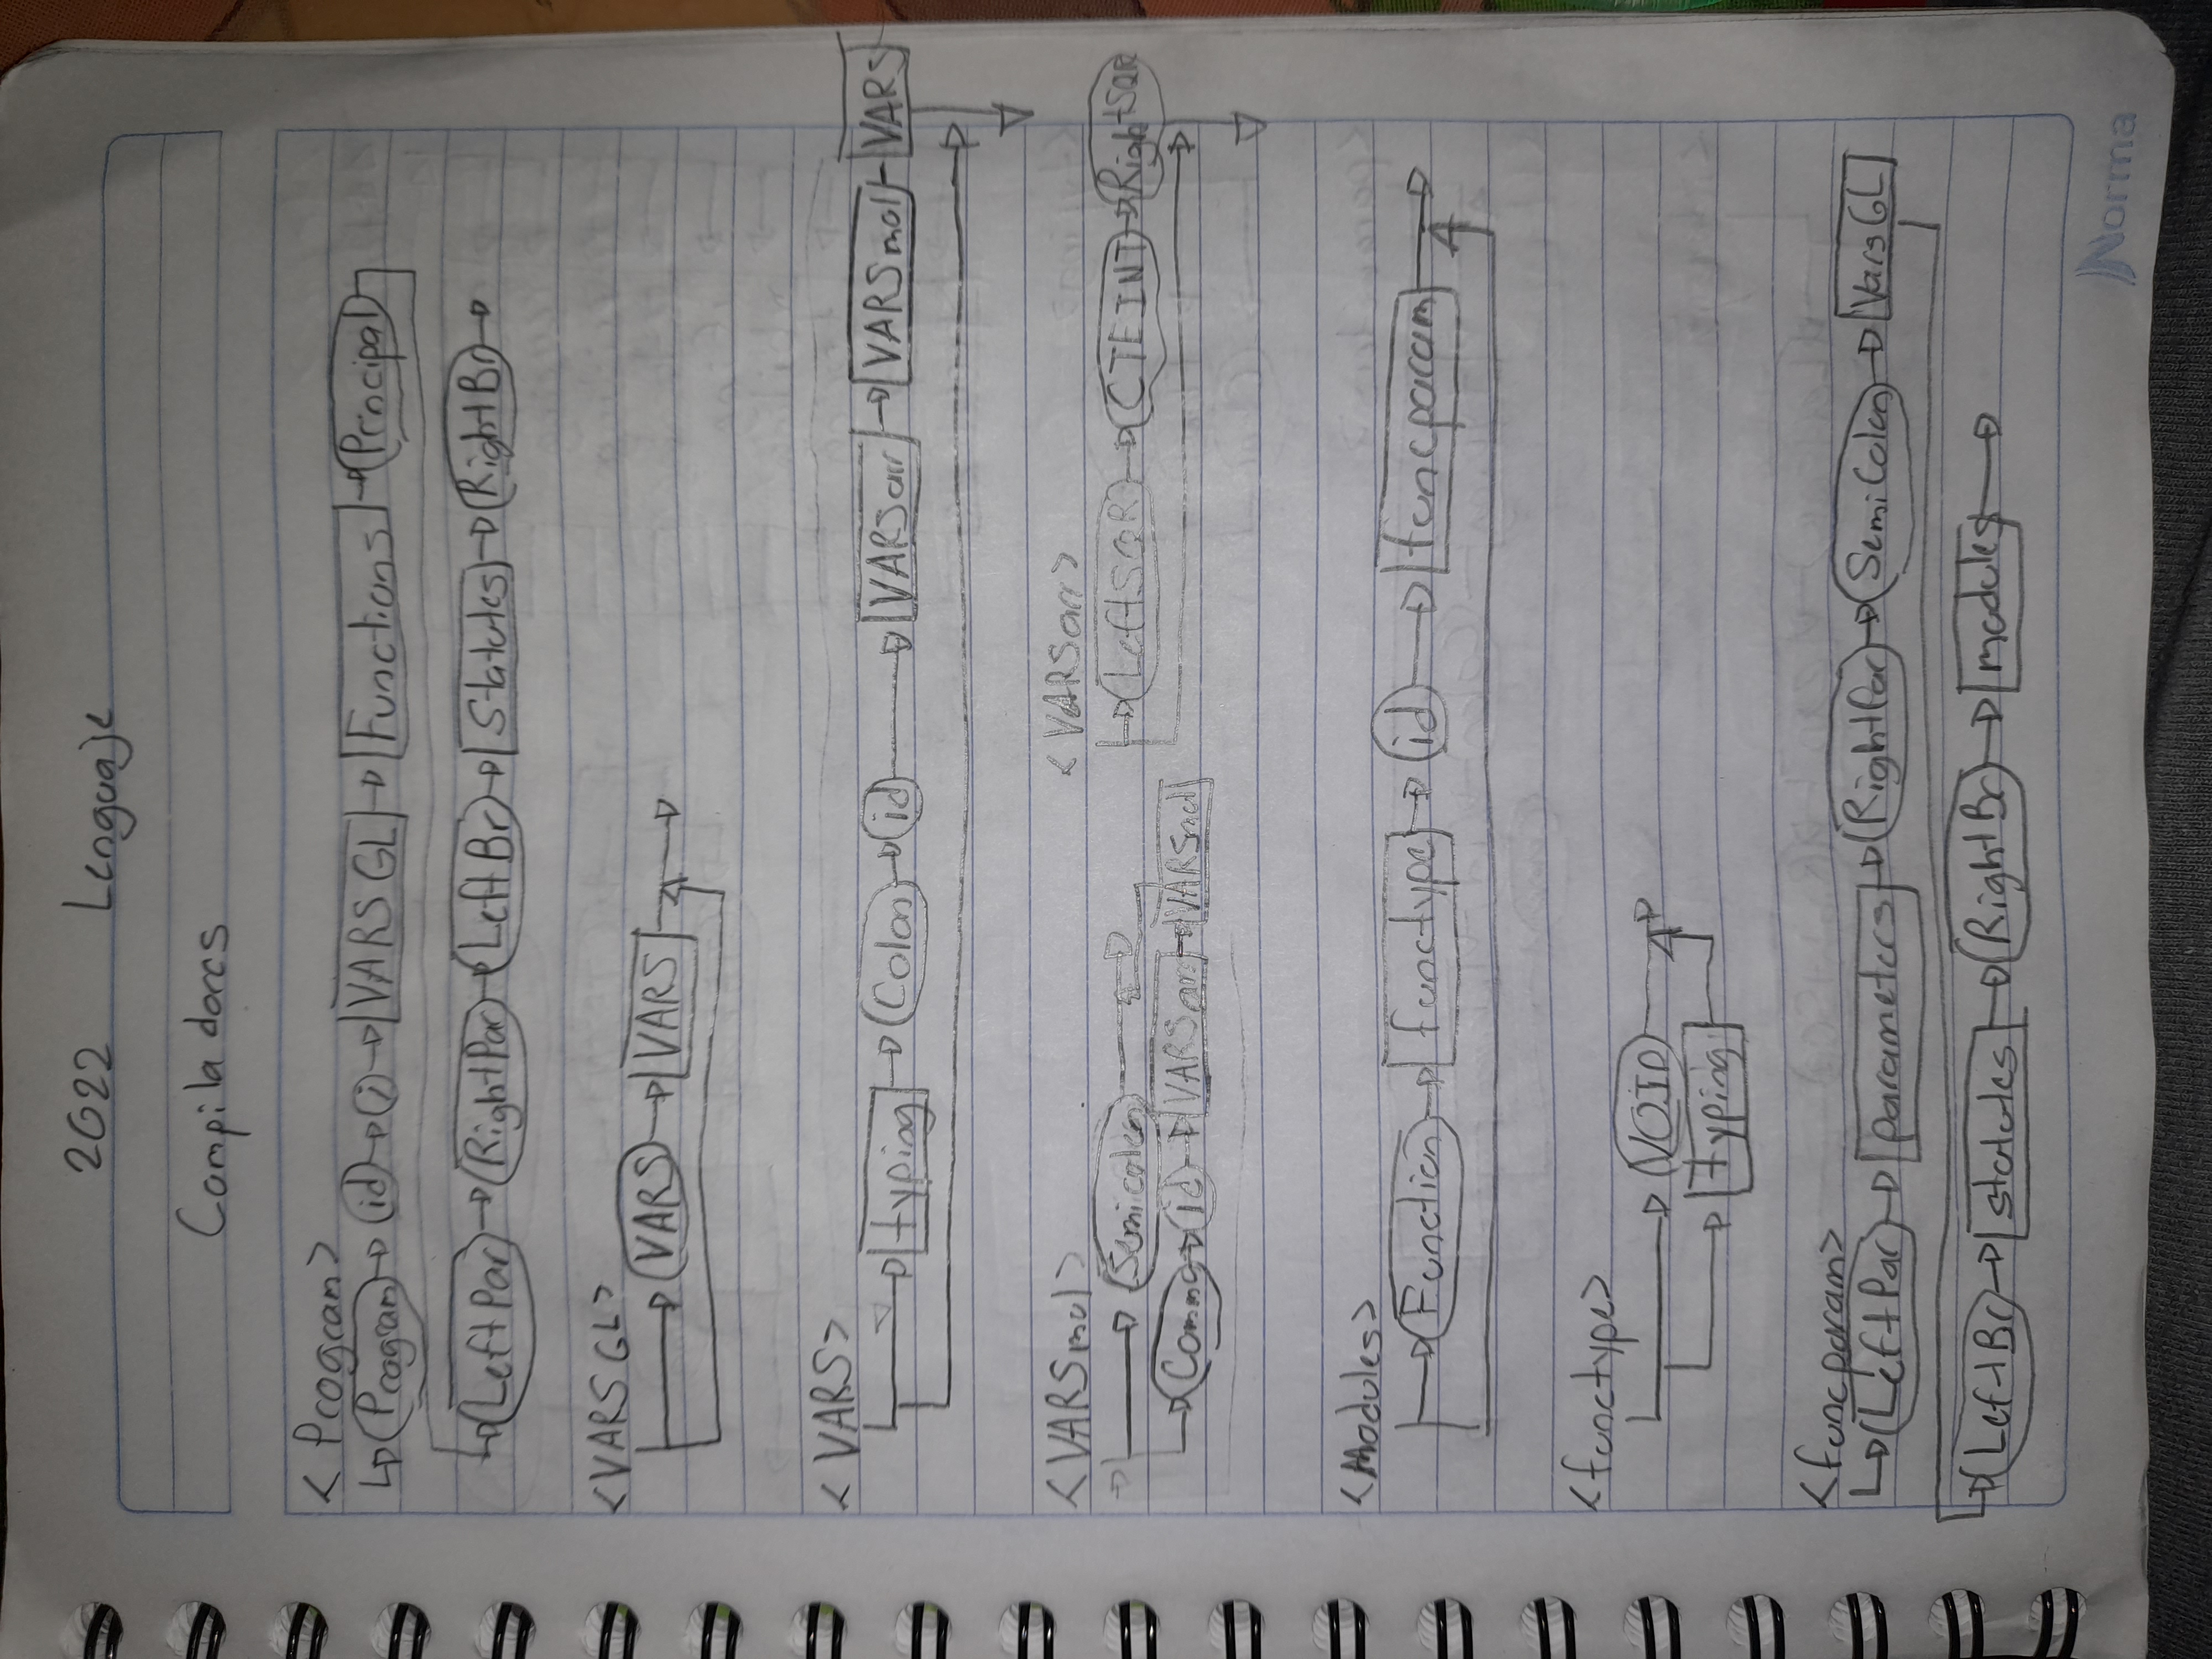 2022 Lenguaje
Compiladores
<Program>
Program id ; VARSGL Functions Principal
LeftPar RightPar LeftBr Statutes RightBr
<VARSGL>
VARS VARS
<VARS>
typing Colon id VARSarr VARSmul VARS
<VARSmul> <VARSarr>
Semicolon LeftSQR CTEINT RightSQR
Comma id VARSarr VARSmul
<Modules>
Function functype id funcparam
<functype>
VOID
typing
<funcparam>
LeftPar parameters RightPar SemiColon VarsGL
LeftBr statutes RightBr modules
Norma